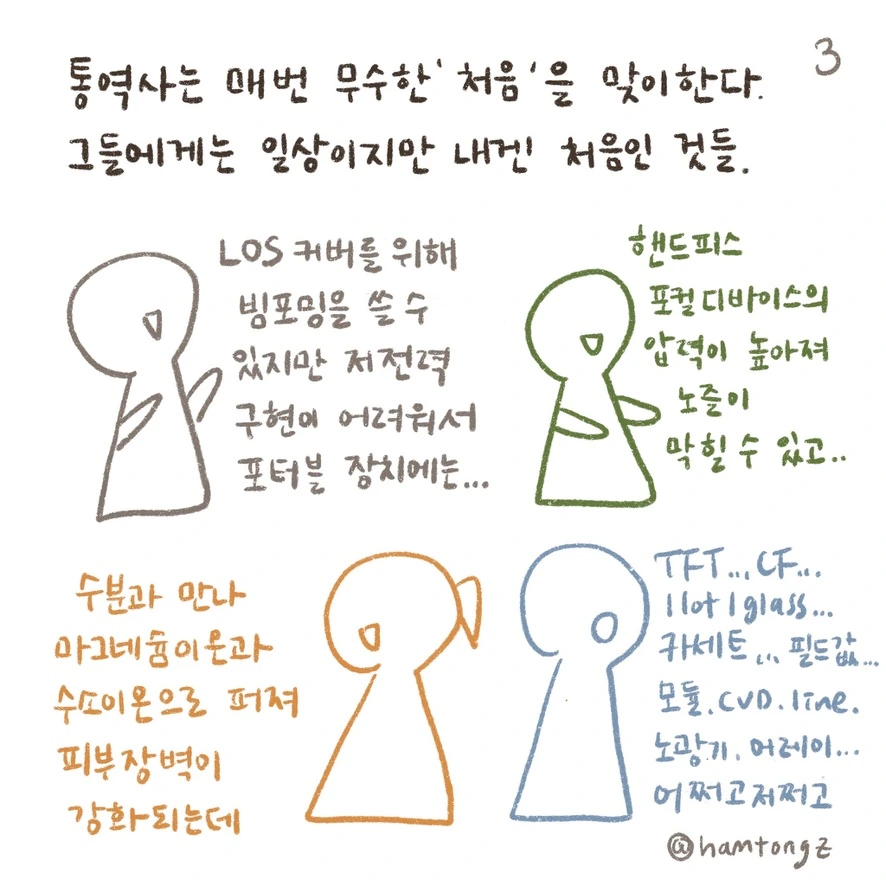 3
통역사는 매번 무수한 '처음'을 맞이한다.
그들에게는 일상이지만 내겐 처음인 것들.
LOS 커버를 위해
빔포밍을 쓸 수
있지만 저전력
구현이 어려워서
포터블 장치에는...
핸드피스
포컬 디바이스의
압력이 높아져
노즐이
막힐 수 있고..
수분과 만나
마그네슘이온과
수소이온으로 퍼져
피부장벽이
강화되는데
TFT... CF...
1 lot 1 glass...
카세트... 필드값...
모듈. CVD. line.
노광기. 어레이...
어쩌고저쩌고
@hamtongz